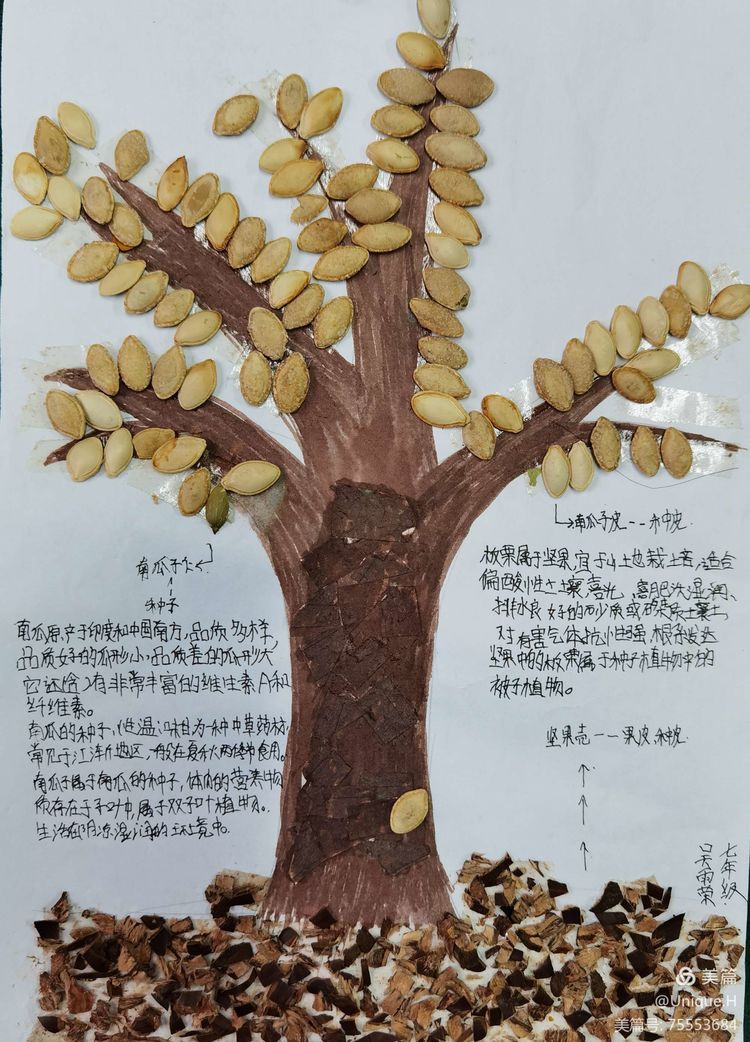 南瓜子仁
种子
南瓜原产于印度和中国南方,品质多样,
品质好的瓜形小,品质差的瓜形大
它还含有非常丰富的维生素A和
纤维素。
南瓜的种子,性温味相为一种中草药材,
常见于江浙地区,一般在夏秋两季节食用。
南瓜子属于南瓜的种子,体内的营养物
质存在于子叶中,属双子叶植物。
生活在阴凉湿润的土环境中。
南瓜子皮--种皮
板栗属于坚果,宜于山地栽土培,适合
偏酸性土壤,喜光,喜肥沃湿润、
排水良好的砂质或砾质土壤土
对有害气体抗性强,根系发达
坚果中的板栗属于种子植物中的
被子植物。
坚果壳--果皮、种皮
七年级
吴雨荣
美篇
@Unique.H
美篇号: 75553684